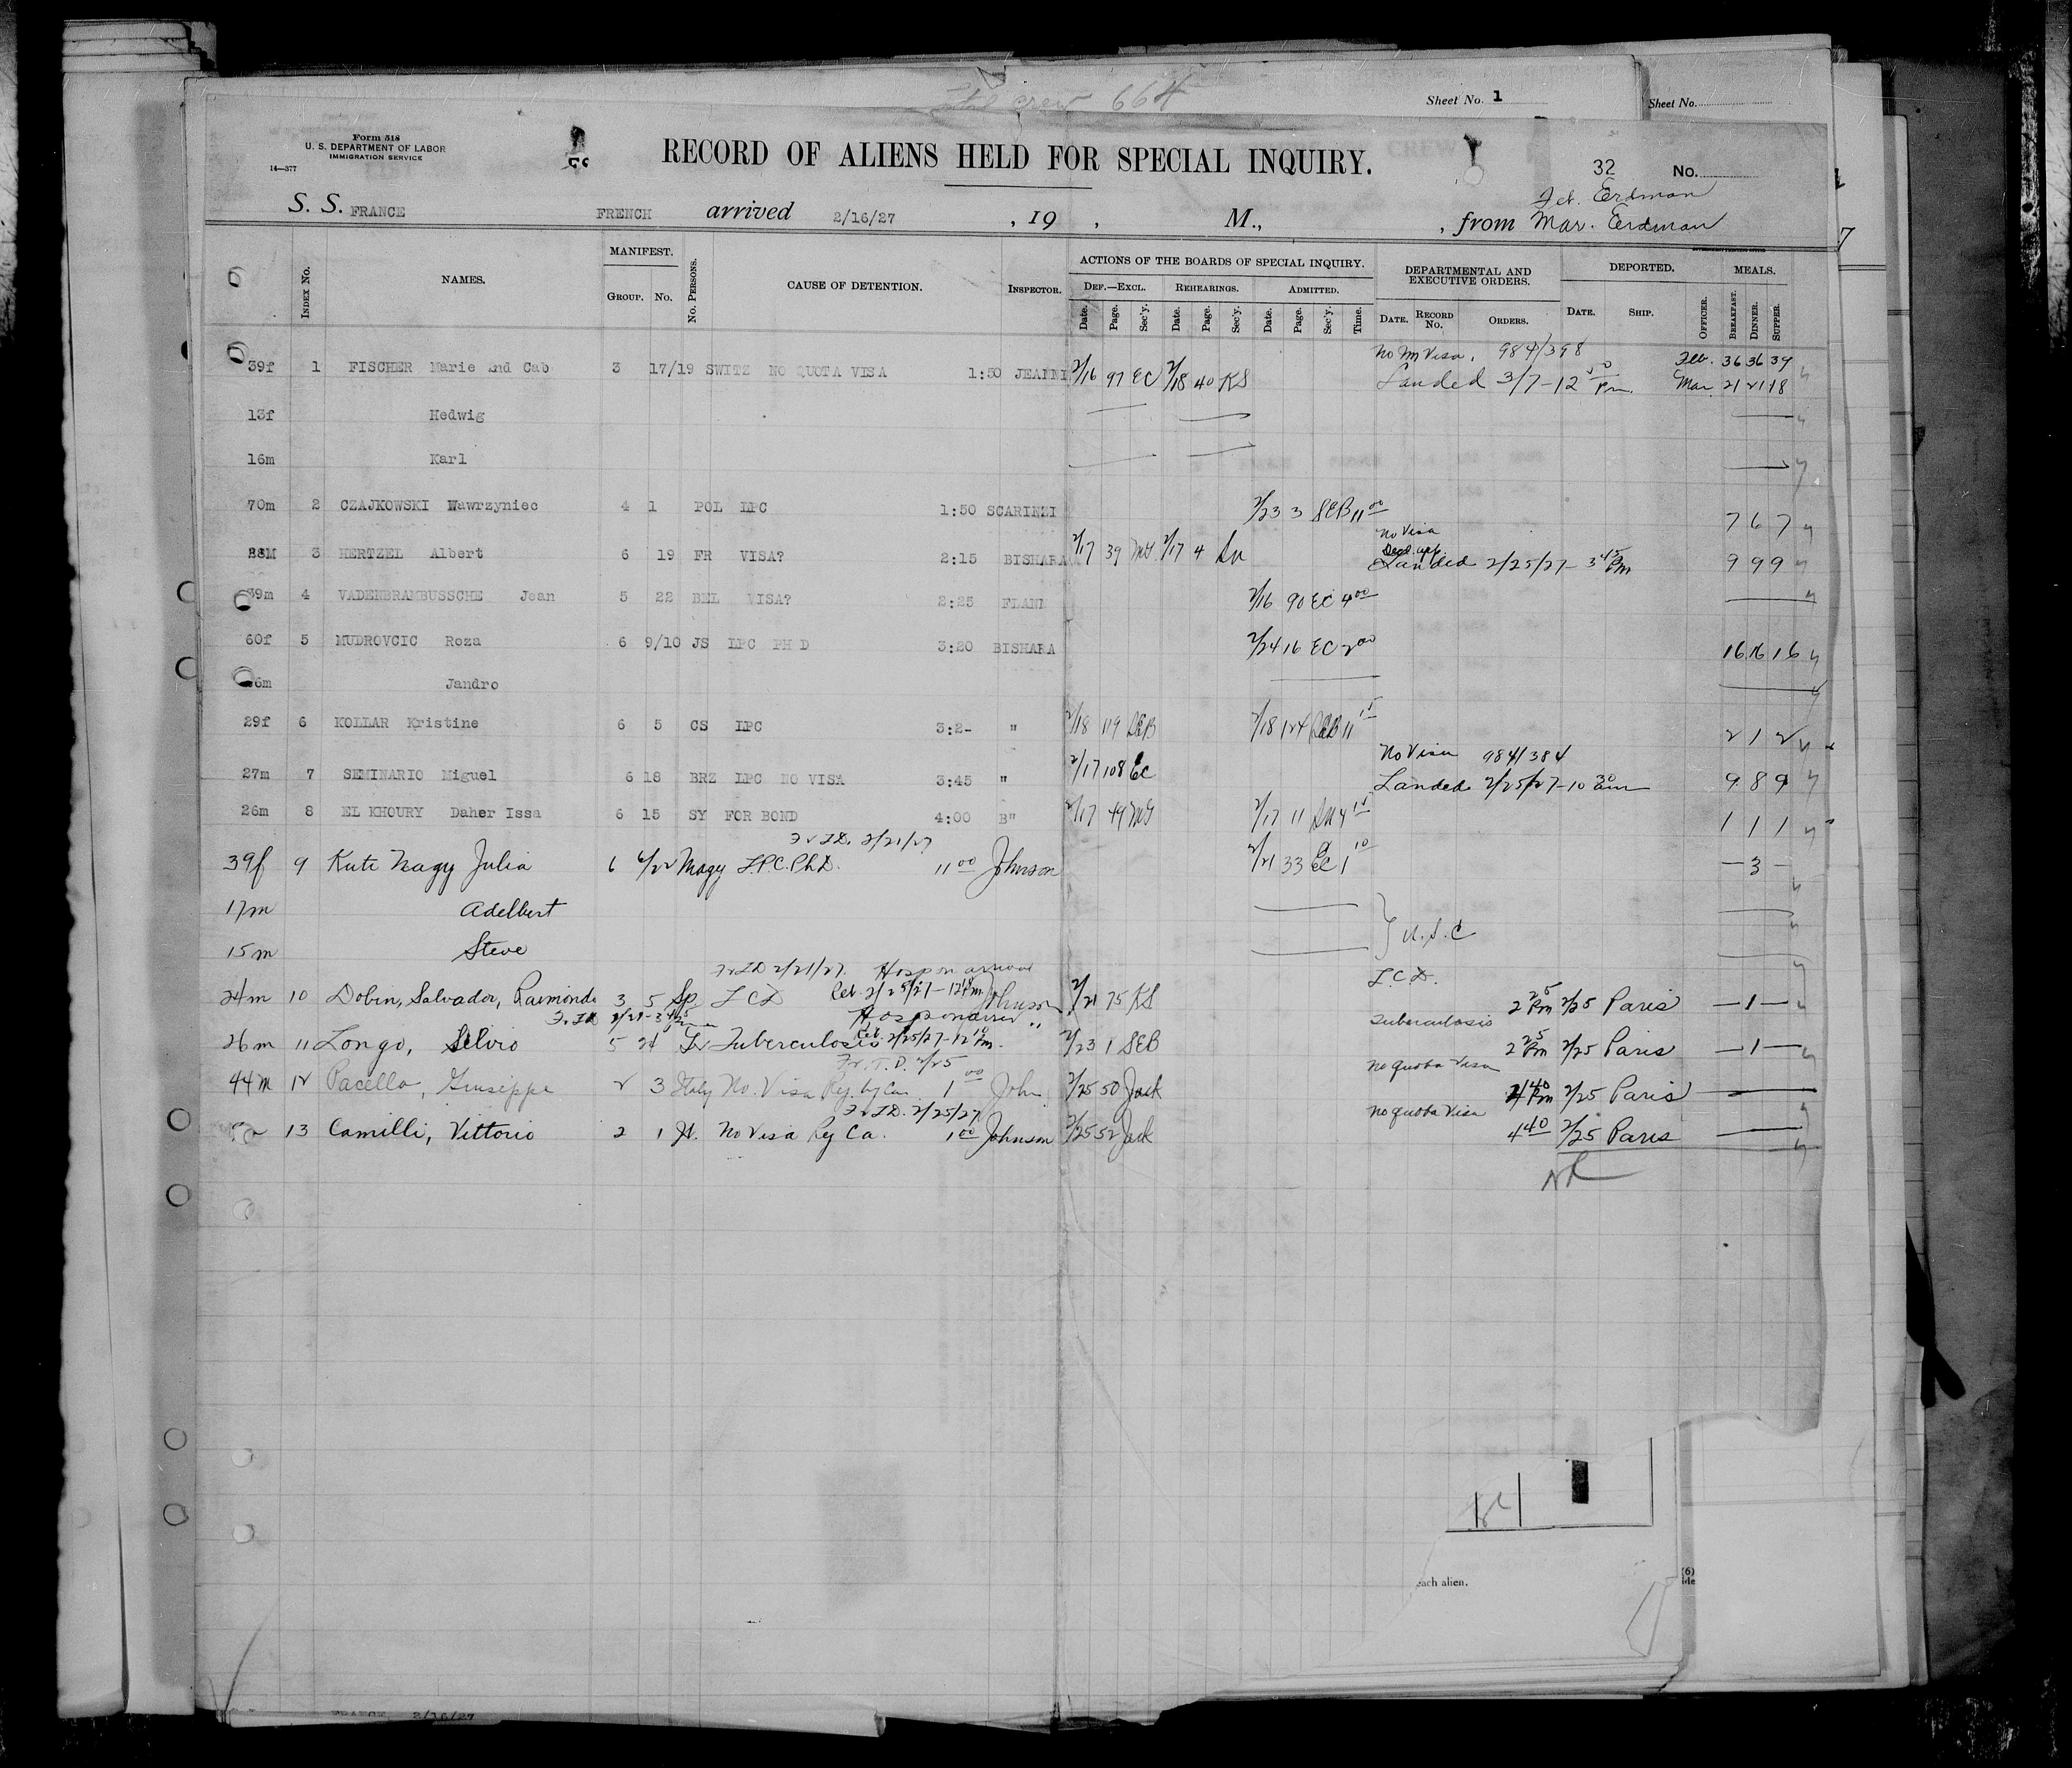 Total crew 664
Sheet No. 1
Sheet No.
Form 518
U. S. DEPARTMENT OF LABOR
IMMIGRATION SERVICE
14—377
RECORD OF ALIENS HELD FOR SPECIAL INQUIRY.
32 No.
Feb. Erdman
S. S. FRANCE FRENCH arrived 2/16/27 , 19 , M., , from Mar. Erdman
INDEX No. NAMES. MANIFEST. GROUP. No. No. PERSONS. CAUSE OF DETENTION. INSPECTOR.
ACTIONS OF THE BOARDS OF SPECIAL INQUIRY.
DEF.—EXCL. REHEARINGS. ADMITTED.
Date. Page. Sec'y. Date. Page. Sec'y. Date. Page. Sec'y. Time.
DEPARTMENTAL AND EXECUTIVE ORDERS.
DATE. RECORD No. ORDERS.
DEPORTED.
DATE. SHIP. OFFICER.
MEALS.
BREAKFAST. DINNER. SUPPER.
No Visa. 984/398
39f 1 FISCHER Marie and Cab 3 17/19 SWITZ NO QUOTA VISA 1:50 JEANNE 2/16 97 EC 2/18 40 KS Landed 3/7-12 Pm. Feb. 36 36 39
Mar 21 21 18
13f Hedwig
16m Karl
70m 2 CZAJKOWSKI Wawrzyniec 4 1 POL LPC 1:50 SCARINZI 2/23 3 SEB 11 00 7 6 7
No Visa
88M 3 HERTZEL Albert 6 19 FR VISA? 2:15 BISHARA 2/17 39 MG 2/17 4 Landed 2/25/27- 3 45 Pm 9 9 9
39m 4 VADENBRAMBUSSCHE Jean 5 22 BEL VISA? 2:25 2/16 90 EC 4 00
60f 5 MUDROVCIC Roza 6 9/10 JS LPC PH D 3:20 BISHARA 2/24 16 EC 2 00 16 16 16
Jandro
29f 6 KOLLAR Kristine 6 5 CS LPC 3:2- " 2/18 119 SEB 2/18 124 SEB 11 15 2 1 2
No Visa 984/384
27m 7 SEMINARIO Miguel 6 18 BRZ LPC NO VISA 3:45 " 2/17 108 EC Landed 2/25/27-10 30 am 9 8 9
26m 8 EL KHOURY Daher Issa 6 15 SY FOR BOND 4:00 B" 2/17 49 MG 2/17 11 1 1 1
Fr I.D. 2/21/27
39f 9 Kute Nagy Julia 6 Magy L.P.C. Ph.D. 11 00 Johnson 2/21 33 EC 1 10 — 3 —
17m Adelbert
U.S.C
15m Steve
Fr I D 2/21/27. Hosp on arrival
L.C.D.
24m 10 Dobin, Salvador, Raimondo 3 5 Sp. L C D Johnson 2/21 75 KS 2 25 Pm 2/25 Paris — 1 —
Tuberculosis
26m 11 Longo, Silvio 5 Tuberculosis 2/25/27-12 10 Pm. " 2/23 1 SEB 2 25 Pm 2/25 Paris — 1 —
Fr. I. D. 2/25
No quota visa
44m 12 Pacella, Giuseppe 2 3 Italy No. Visa Rej. by Ca. 1 00 John 2/25 50 Jack 4 40 Pm 2/25 Paris
Fr I.D. 2/25/27
No quota Visa
13 Camilli, Vittorio 2 1 It. No Visa Rej Ca. 1 00 Johnson 2/25 52 Jack 4 40 2/25 Paris
each alien.
(6)
2/16/27